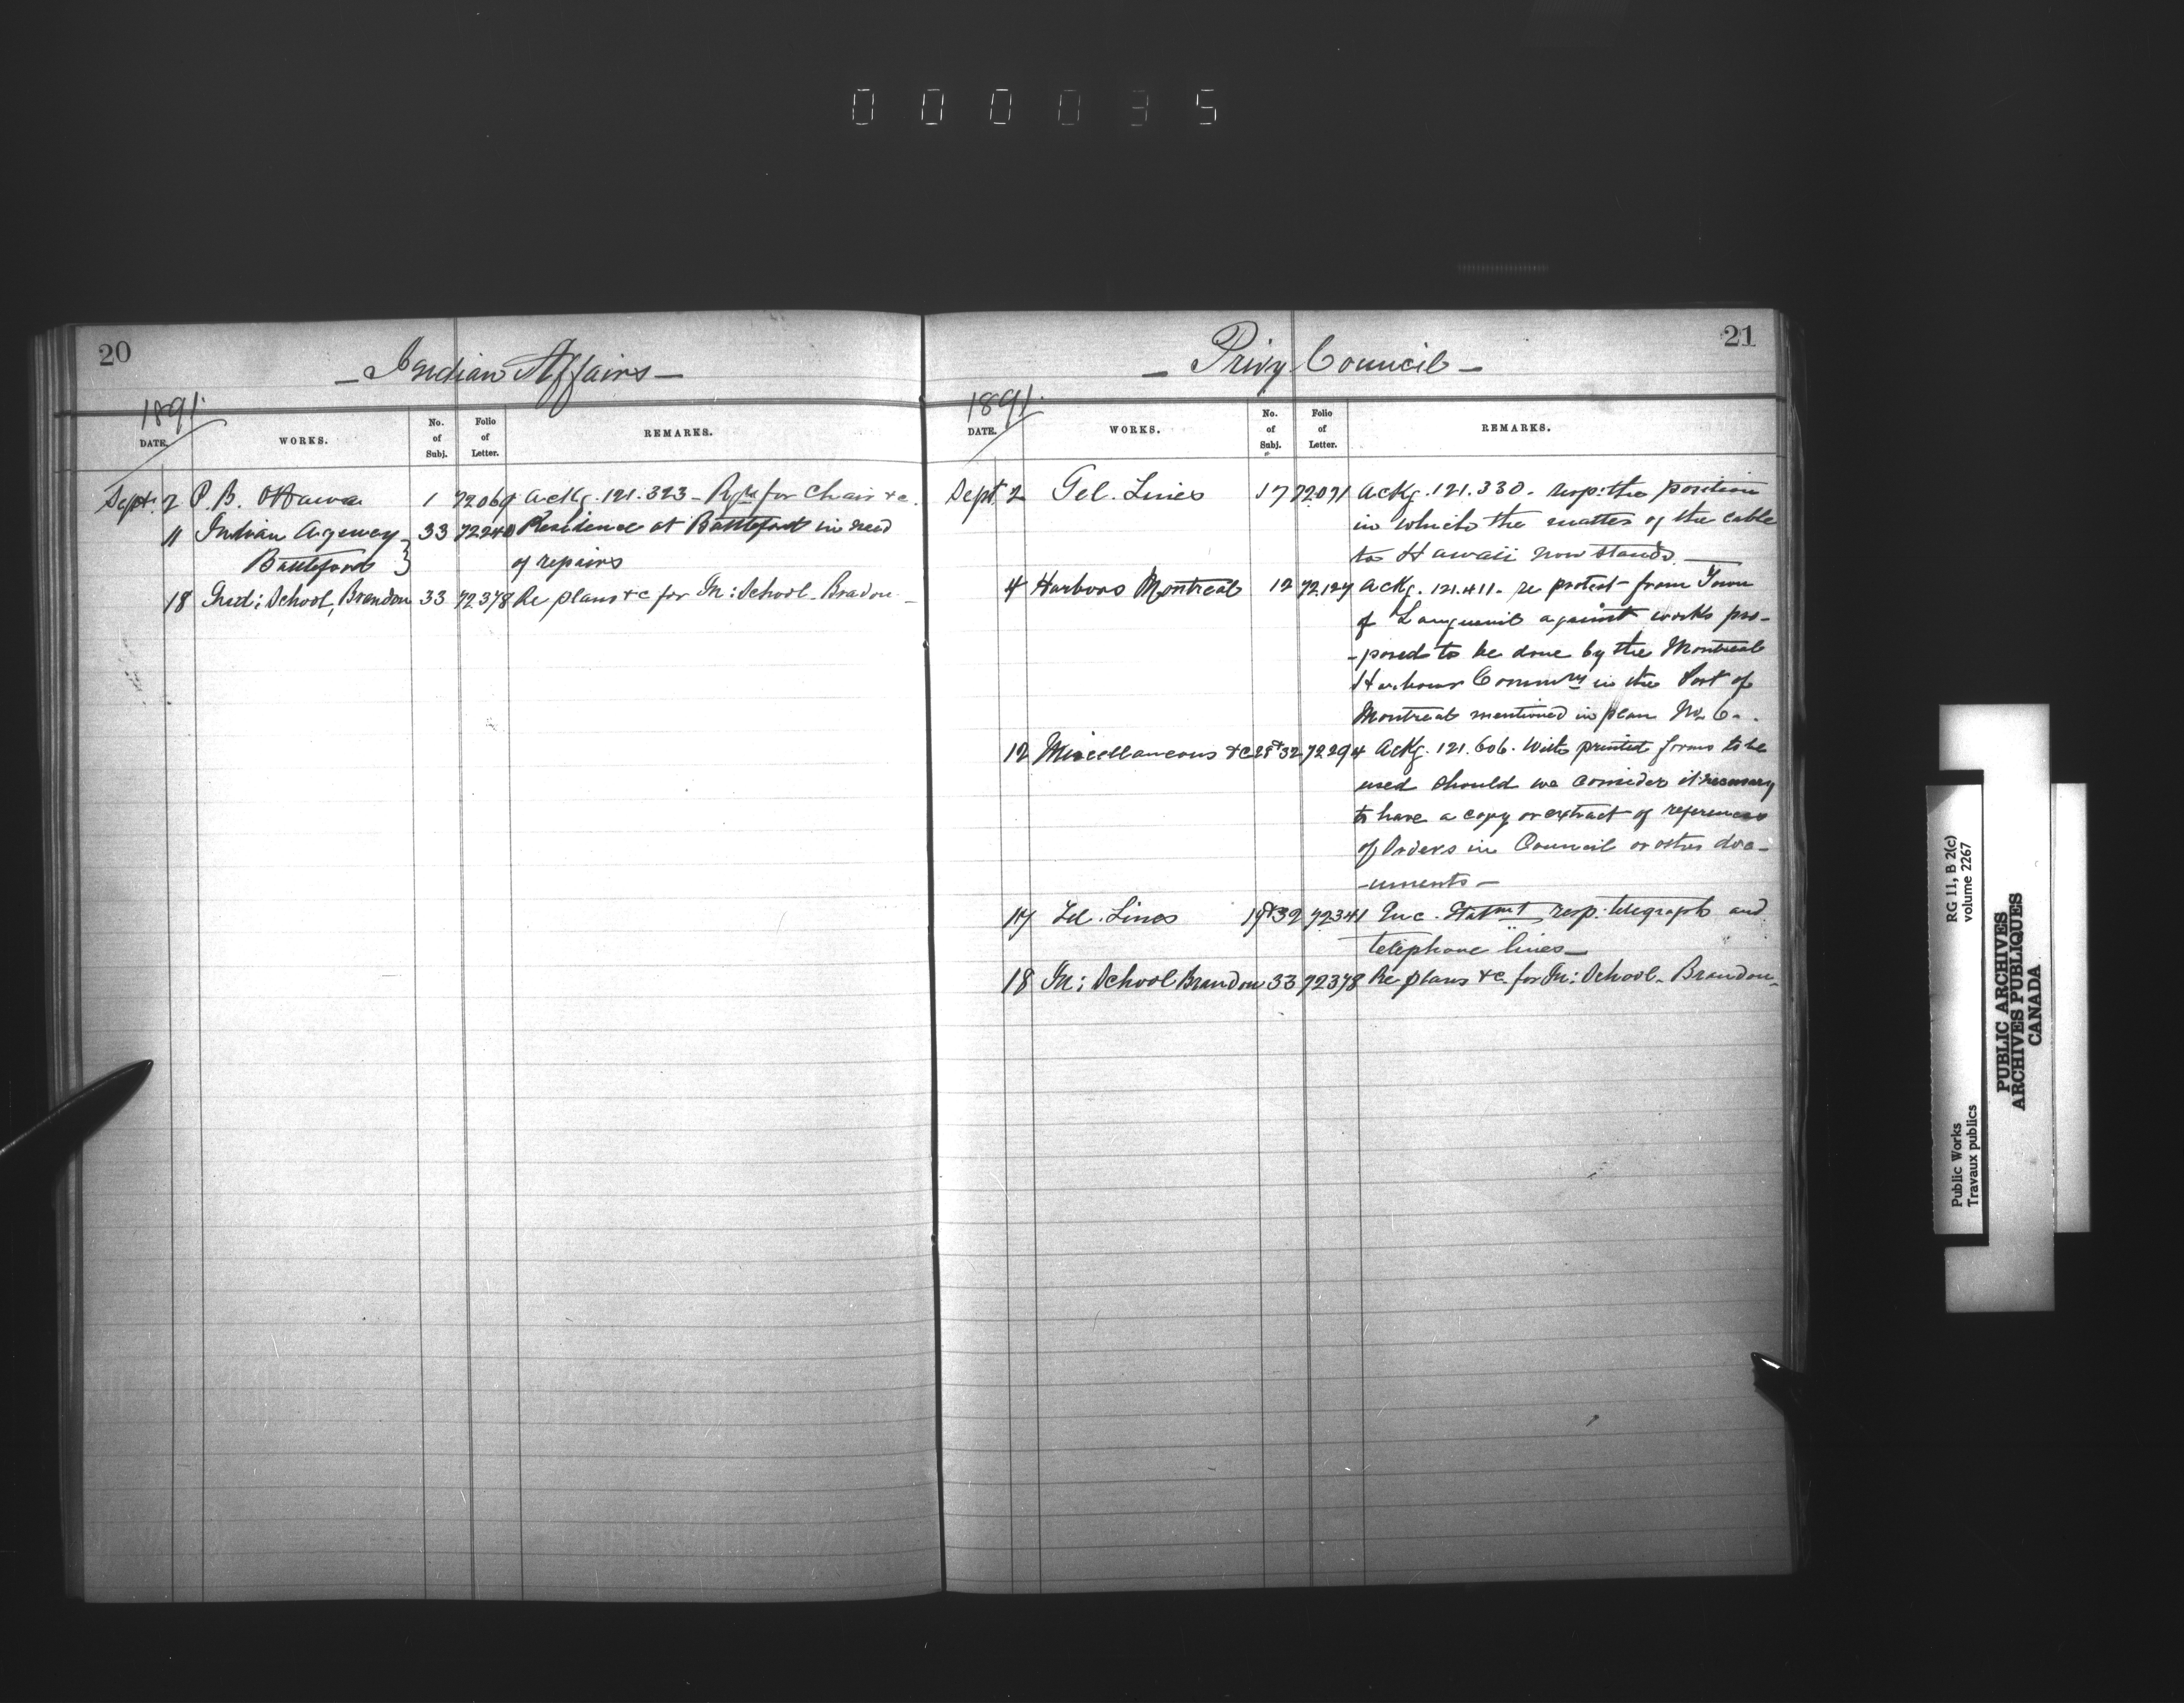 000035
20
Indian Affairs
1891
DATE. WORKS. No. of Subj. Folio of Letter. REMARKS.
Sept. 2 P. B. Ottawa 1 72069 Ackg. 121.323 - for Chair &c.
11 Indian Agency 33 72240 Residence at Battleford in need
Battleford } of repairs
18 Ind: School, Brandon 33 72378 Re plans &c for In: School - Bradon -
21
Privy Council
1891
DATE. WORKS. No. of Subj. Folio of Letter. REMARKS.
Sept. 2 Tel. Lines 17 72.071 Ackg. 121.330. resp: the position
in which the matter of the cable
to Hawaii now stands. -
4 Harbors Montreal 12 72.127 Ackg. 121.411. re protest from Town
of Longueuil against works pro-
-posed to be done by the Montreal
Harbour Commrs in the Port of
Montreal mentioned in plan No 6.
12 Miscellaneous &c 28 & 32 72294 Ackg. 121.606. With printed forms to be
used should we consider it necessary
to have a copy or extract of references
of Orders in Council or other doc-
-uments -
17 Tel. Lines 19 & 32 72341 Enc. Statmt resp: telegraph and
telephone lines -
18 In: School Brandon 33 72378 Re plans &c. for In: School - Brandon -
Public Works
Travaux publics
RG 11, B 2(c)
volume 2267
PUBLIC ARCHIVES
ARCHIVES PUBLIQUES
CANADA